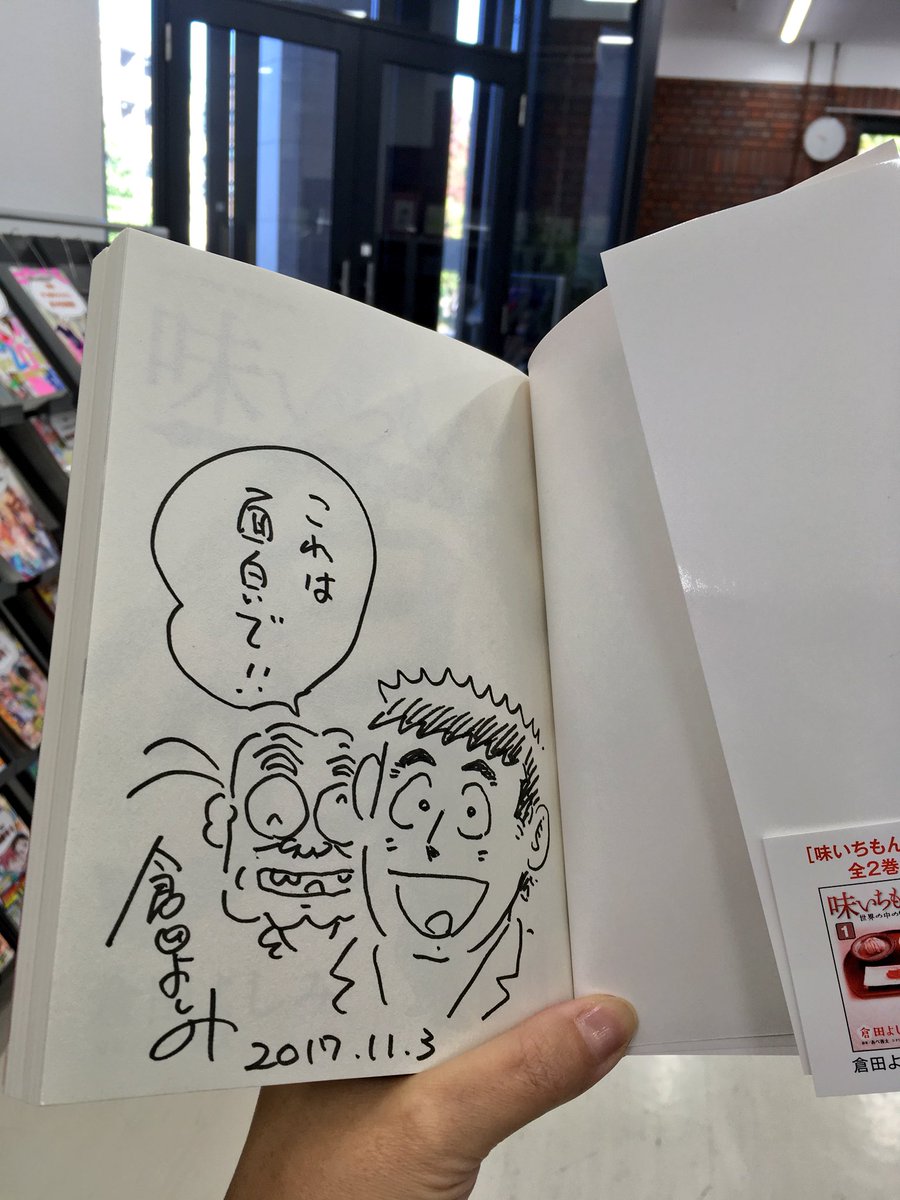 これは
面白いで!!
倉田よしみ
2017.11.3
味
［味いちもん
全2巻
味いちも
世界の中の
1
倉田よし
倉田よ